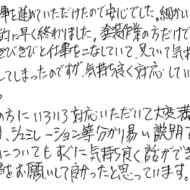 事を進めていただけたので安心でした。細かい
的に早く終わりました。塗装作業の方だけで
きびきびと仕事をこなしていて、見ていて気持
してしまったのですが、気持ち良く対応してい
。
の方にいろいろ対応いただいて大変満
、シュミレーション等分かり易い説明で
についてもすぐに気持ち良く話ができ
をお願いして良かったと思っています。